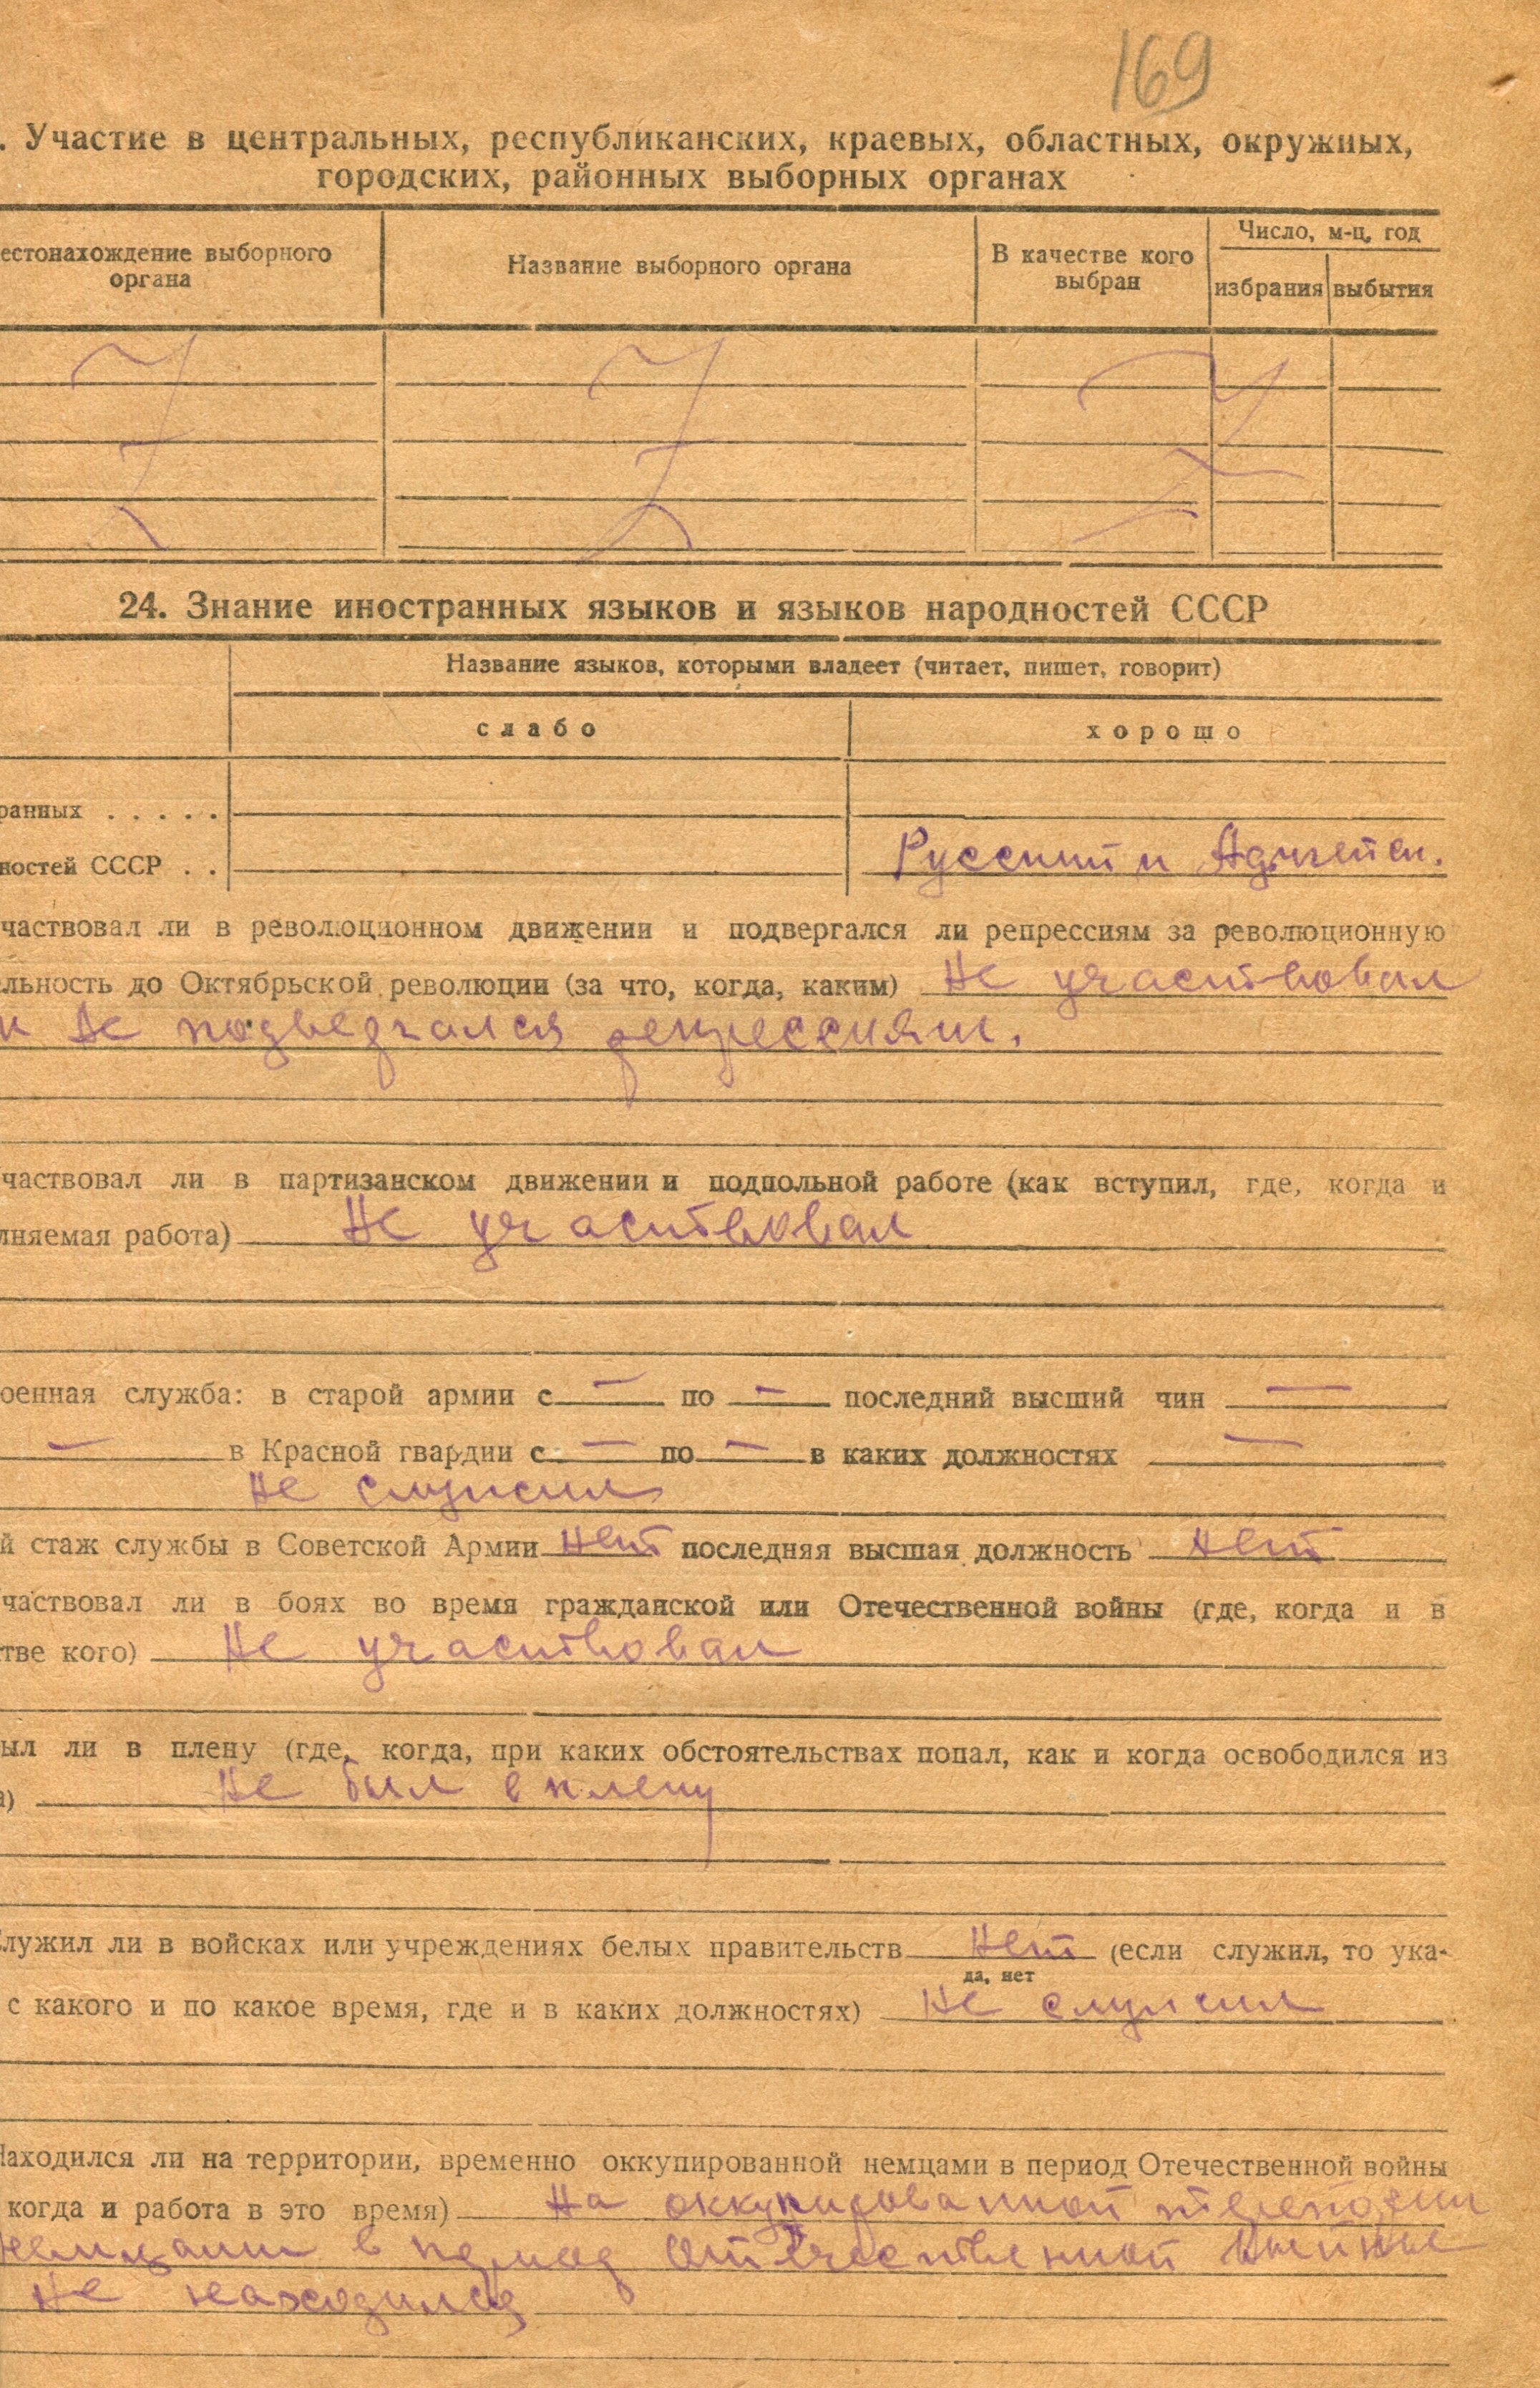 169
. Участие в центральных, республиканских, краевых, областных, окружных,
городских, районных выборных органах
естонахождение выборного
органа
Название выборного органа
В качестве кого
выбран
Число, м-ц, год
избрания
выбытия
24. Знание иностранных языков и языков народностей СССР
Название языков, которыми владеет (читает, пишет, говорит)
слабо
хорошо
ранных . . . . .
ностей СССР . . Русский и Адыгейск.
частвовал ли в революционном движении и подвергался ли репрессиям за революционную
льность до Октябрьской революции (за что, когда, каким) Не участвовал
и не подвергался репрессиям.
частвовал ли в партизанском движении и подпольной работе (как вступил, где, когда и
лняемая работа) Не участвовал
оенная служба: в старой армии с — по — последний высший чин —
— в Красной гвардии с — по — в каких должностях —
Не служил
й стаж службы в Советской Армии нет последняя высшая должность нет
частвовал ли в боях во время гражданской или Отечественной войны (где, когда и в
тве кого) Не участвовал
ыл ли в плену (где, когда, при каких обстоятельствах попал, как и когда освободился из
а) Не был в плену
лужил ли в войсках или учреждениях белых правительств Нет (если служил, то ука-
да, нет
с какого и по какое время, где и в каких должностях) Не служил
Находился ли на территории, временно оккупированной немцами в период Отечественной войны
когда и работа в это время) На оккупированной
немцами в период Отечественной войны
не находился